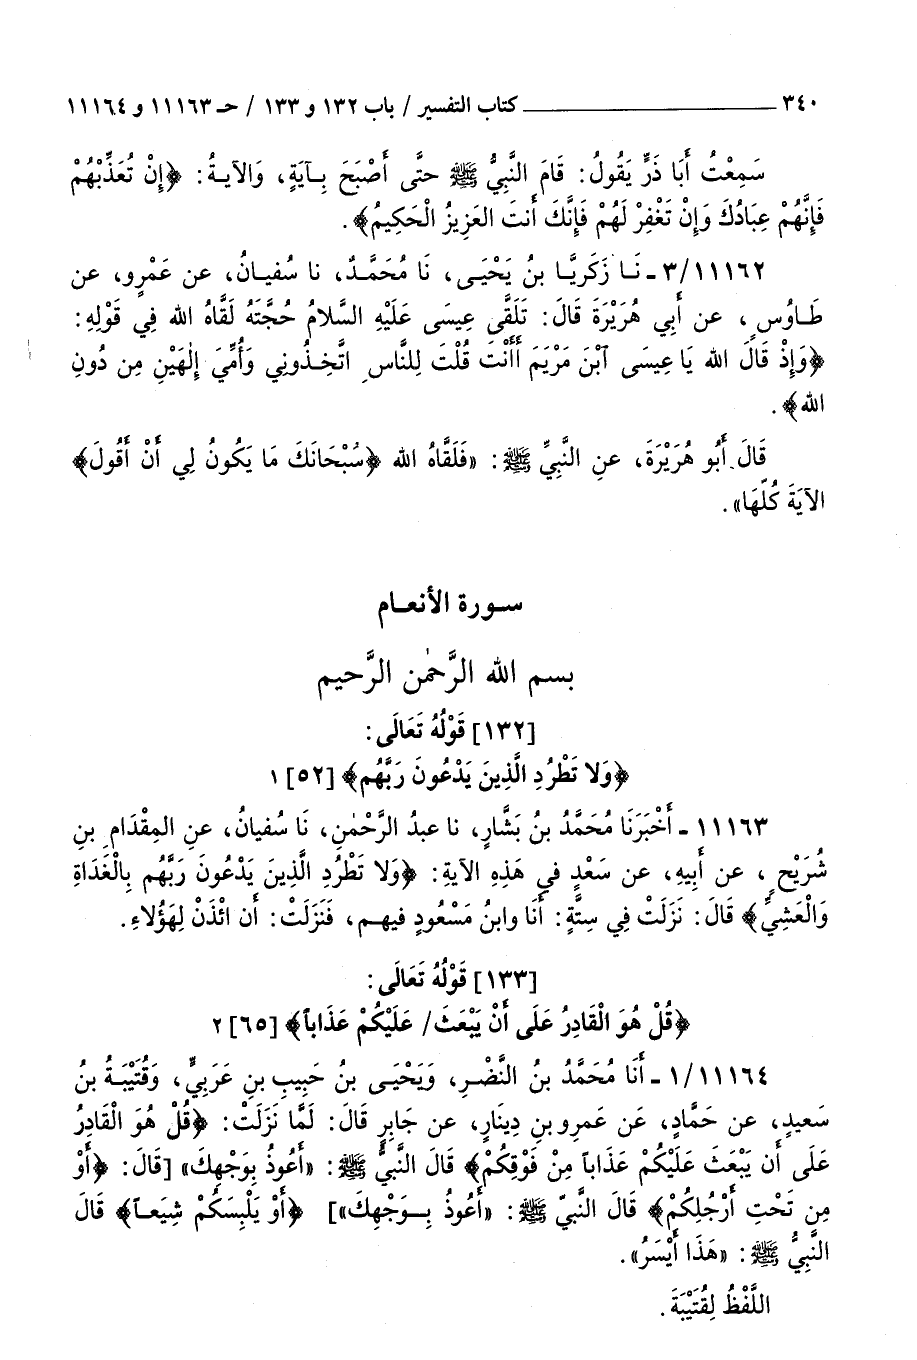 ٣٤٠ ــــــــــــــــــ كتاب التفسير / باب ١٣٢ و ١٣٣ / حـ ١١١٦٣ و ١١١٦٤
سَمِعْتُ أَبَا ذَرٍّ يَقُولُ: قَامَ النَّبِيُّ ﷺ حتَّى أَصْبَحَ بِـآيَةٍ، وَالآيـةُ: ﴿إِنْ تُعَذِّبْهُمْ
فَإِنَّهُمْ عِبَادُكَ وَإِنْ تَغْفِرْ لَهُمْ فَإِنَّكَ أَنتَ العَزِيزُ الْحَكِيمُ﴾.
٣/١١١٦٢ ـ نَـا زَكَرِيَّـا بنُ يَحْيَـى، نَا مُحَمَّدٌ، نا سُفيانُ، عن عَمْرٍو، عن
طَـاوُسٍ، عن أَبِي هُرَيْرَةَ قَالَ: تَلَقَّى عِيسَى عَلَيْهِ السَّلامُ حُجَّتَهُ لَقَّاهُ الله فِي قَوْلِهِ:
﴿وَإِذْ قَالَ الله يَا عِيسَى آبْنَ مَرْيَمَ أَأَنْتَ قُلْتَ لِلنَّاسِ اتَّخِـذُونِي وَأُمِّيَ إِلٰهَيْنِ مِن دُونِ
الله﴾.
قَالَ أَبُو هُرَيْرَةَ، عنِ النَّبِيِّ ﷺ: «فَلَقَّاهُ الله ﴿سُبْحَانَكَ مَا يَكُونُ لِي أَنْ أَقُولَ﴾
الآيَةَ كُلَّهَا».
سـورة الأنعـام
بسم الله الرَّحمٰن الرَّحيم
[١٣٢] قَوْلُهُ تَعَالَى:
﴿وَلا تَطْرُدِ الَّذِينَ يَدْعُونَ رَبَّهُم﴾ [٥٢] ١
١١١٦٣ ـ أَخْبَرَنَا مُحَمَّدُ بنُ بَشَّارٍ، نا عبدُ الرَّحْمٰنِ، نَا سُفيانُ، عنِ المِقْدَامِ بنِ
شُرَيْحٍ، عن أَبيهِ، عن سَعْدٍ في هَذِهِ الآيةِ: ﴿وَلا تَطْرُدِ الَّذِينَ يَدْعُونَ رَبَّهُم بِالْغَدَاةِ
وَالْعَشِيِّ﴾ قَالَ: نَزَلَتْ فِي سِتَّةٍ: أَنَا وابنُ مَسْعُودٍ فيهـم، فَنَزَلَتْ: أَن ائْذَنْ لِهَؤُلاءِ.
[١٣٣] قَوْلُهُ تَعَالَى:
﴿قُلْ هُوَ الْقَادِرُ عَلَى أَنْ يَبْعَثَ/ عَلَيْكُمْ عَذَاباً﴾ [٦٥] ٢
١/١١١٦٤ ـ أَنَا مُحَمَّدُ بنُ النَّضْرِ، وَيَحْيَـى بنُ حَبِيبِ بنِ عَرَبِيٍّ، وَقُتَيْبَـةُ بنُ
سَعيدٍ، عن حَمَّادٍ، عَن عَمرِو بنِ دِينَارٍ، عن جَابِرٍ قَالَ: لَمَّا نَزَلَتْ: ﴿قُلْ هُوَ الْقَادِرُ
عَلَى أَن يَبْعَثَ عَلَيْكُمْ عَذَاباً مِنْ فَوْقِكُمْ﴾ قَالَ النَّبيُّ ﷺ: «أَعُوذُ بِوَجْهِكَ» [قَالَ: ﴿أَوْ
مِن تَحْتِ أَرْجُلِكُمْ﴾ قَالَ النَّبيّ ﷺ: «أَعُوذُ بِـوَجْهِكَ»] ﴿أَوْ يَلْبِسَكُم شِيَعـاً﴾ قَالَ
النَّبِيُّ ﷺ: «هَذَا أَيْسَرُ».
اللَّفْظُ لِقُتَيْبَةَ.